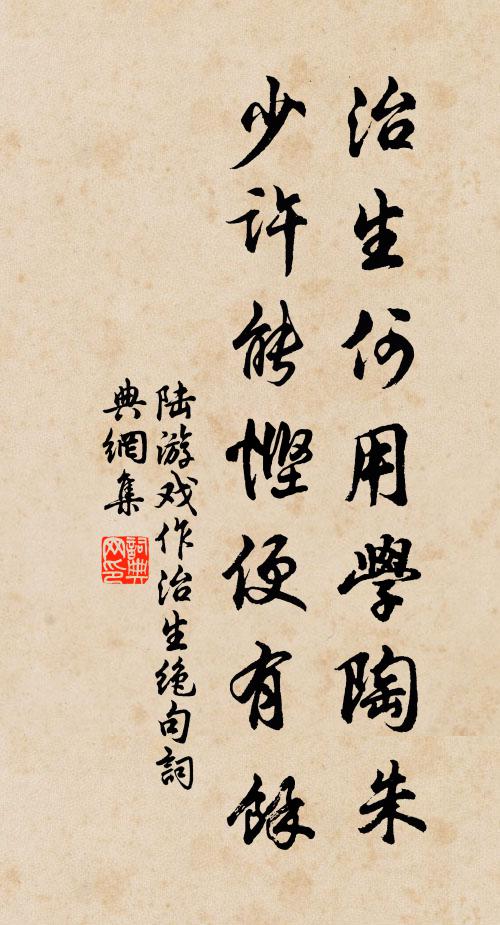 治生何用學陶朱
少許能慳便有餘
陆游戏作治生绝句詞
典網集
詞典網印